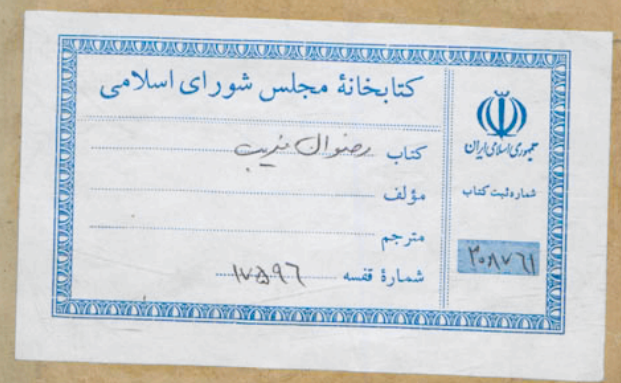 کتابخانهٔ مجلس شورای اسلامی
کتاب رضوان
مؤلف
مترجم
شمارهٔ قفسه ۱۷۵۹۶
جمهوری اسلامی ایران
شماره ثبت کتاب
۳۰۸۷۶۱